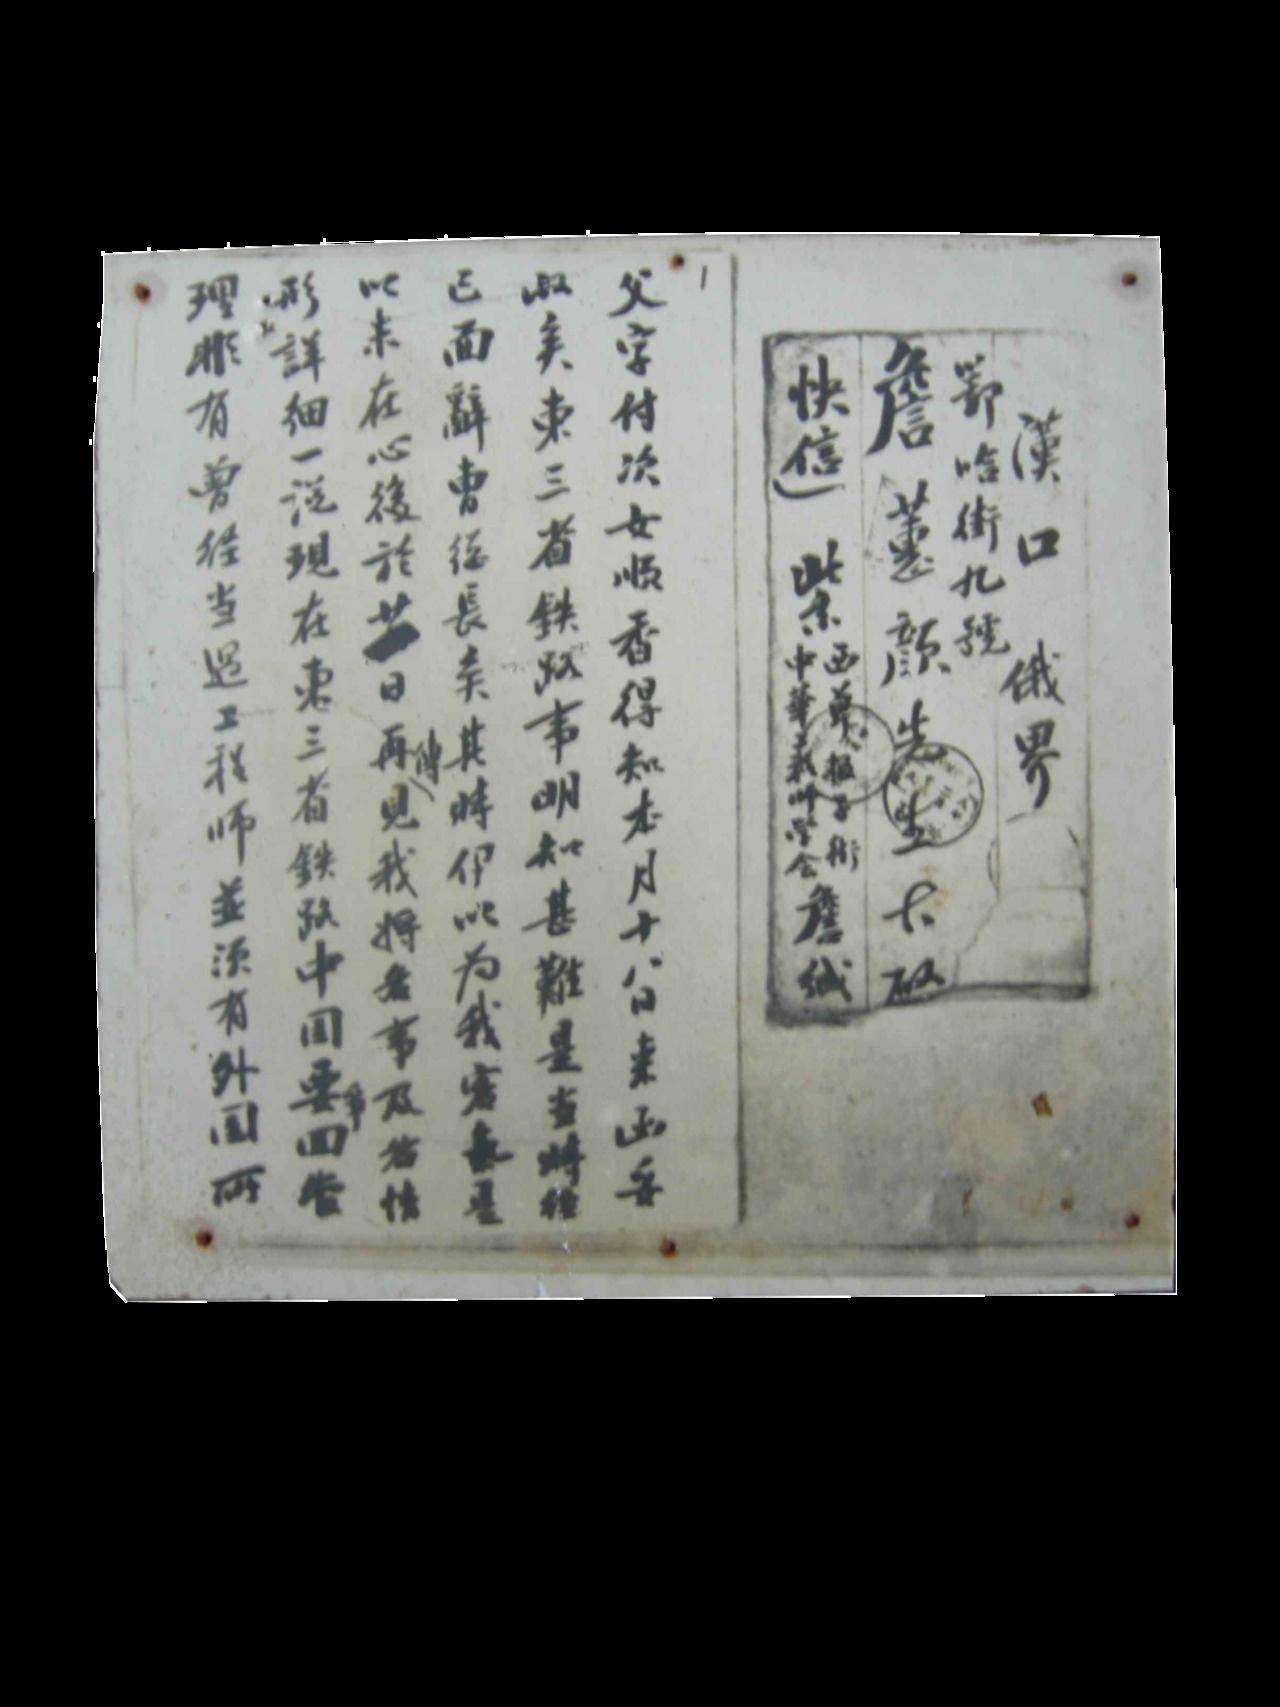 漢口 俄界
鄂哈街九號
詹蕙顏先生大啟
快信 紫
西單報子街
中華工程師學会
詹緘
1
父字付次女順香得知本月十八日来函妥
收矣東三省鉄路事明知甚難是当時經
已面辭曹總長矣其時伊以为我客氣是
以未在心後於廿日再傳見我將各事及各情
形詳细一說現在東三省鉄路中国要爭回管
理非有曾经当過工程师並须有外国所